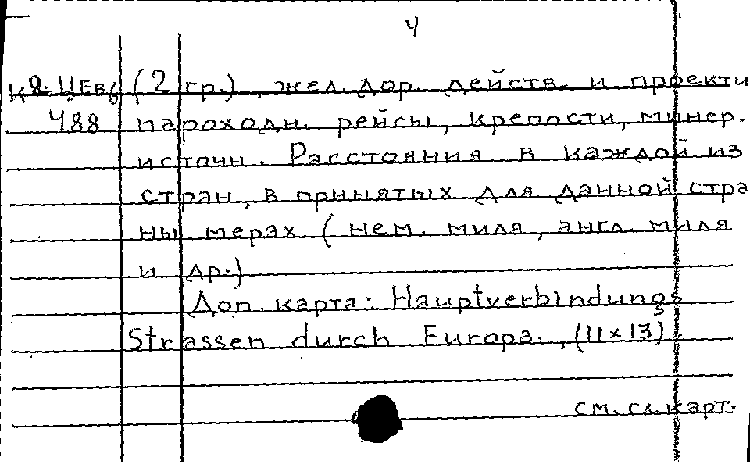 4
к 8. ЦЕв/ (2 гр.), жел. дор. действ. и проекти
488 пароходн. рейсы, крепости, минер.
источн. Расстояния в каждой из
стран, в принятых для данной стра
ны мерах (нем. миля, англ. миля
и др.)
Доп. карта: Hauptverbindungs
Strassen durch Europa., (11×13).
см. сл. карт.